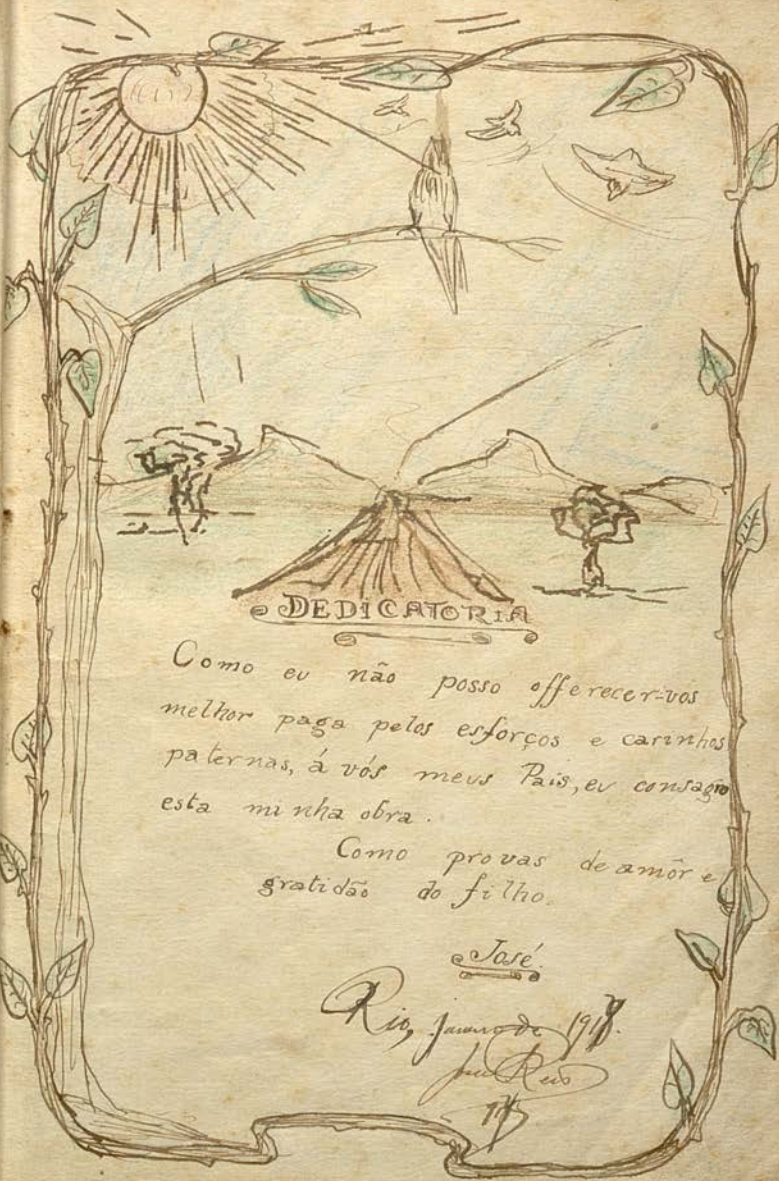 DEDICATORIA
Como eu não posso offerecer-vos
melhor paga pelos esforços e carinhos
paternas, á vós meus Pais, eu consagro
esta minha obra.
Como provas de amôr e
gratidão do filho.
José.
Rio, janeiro de 191
José Reis